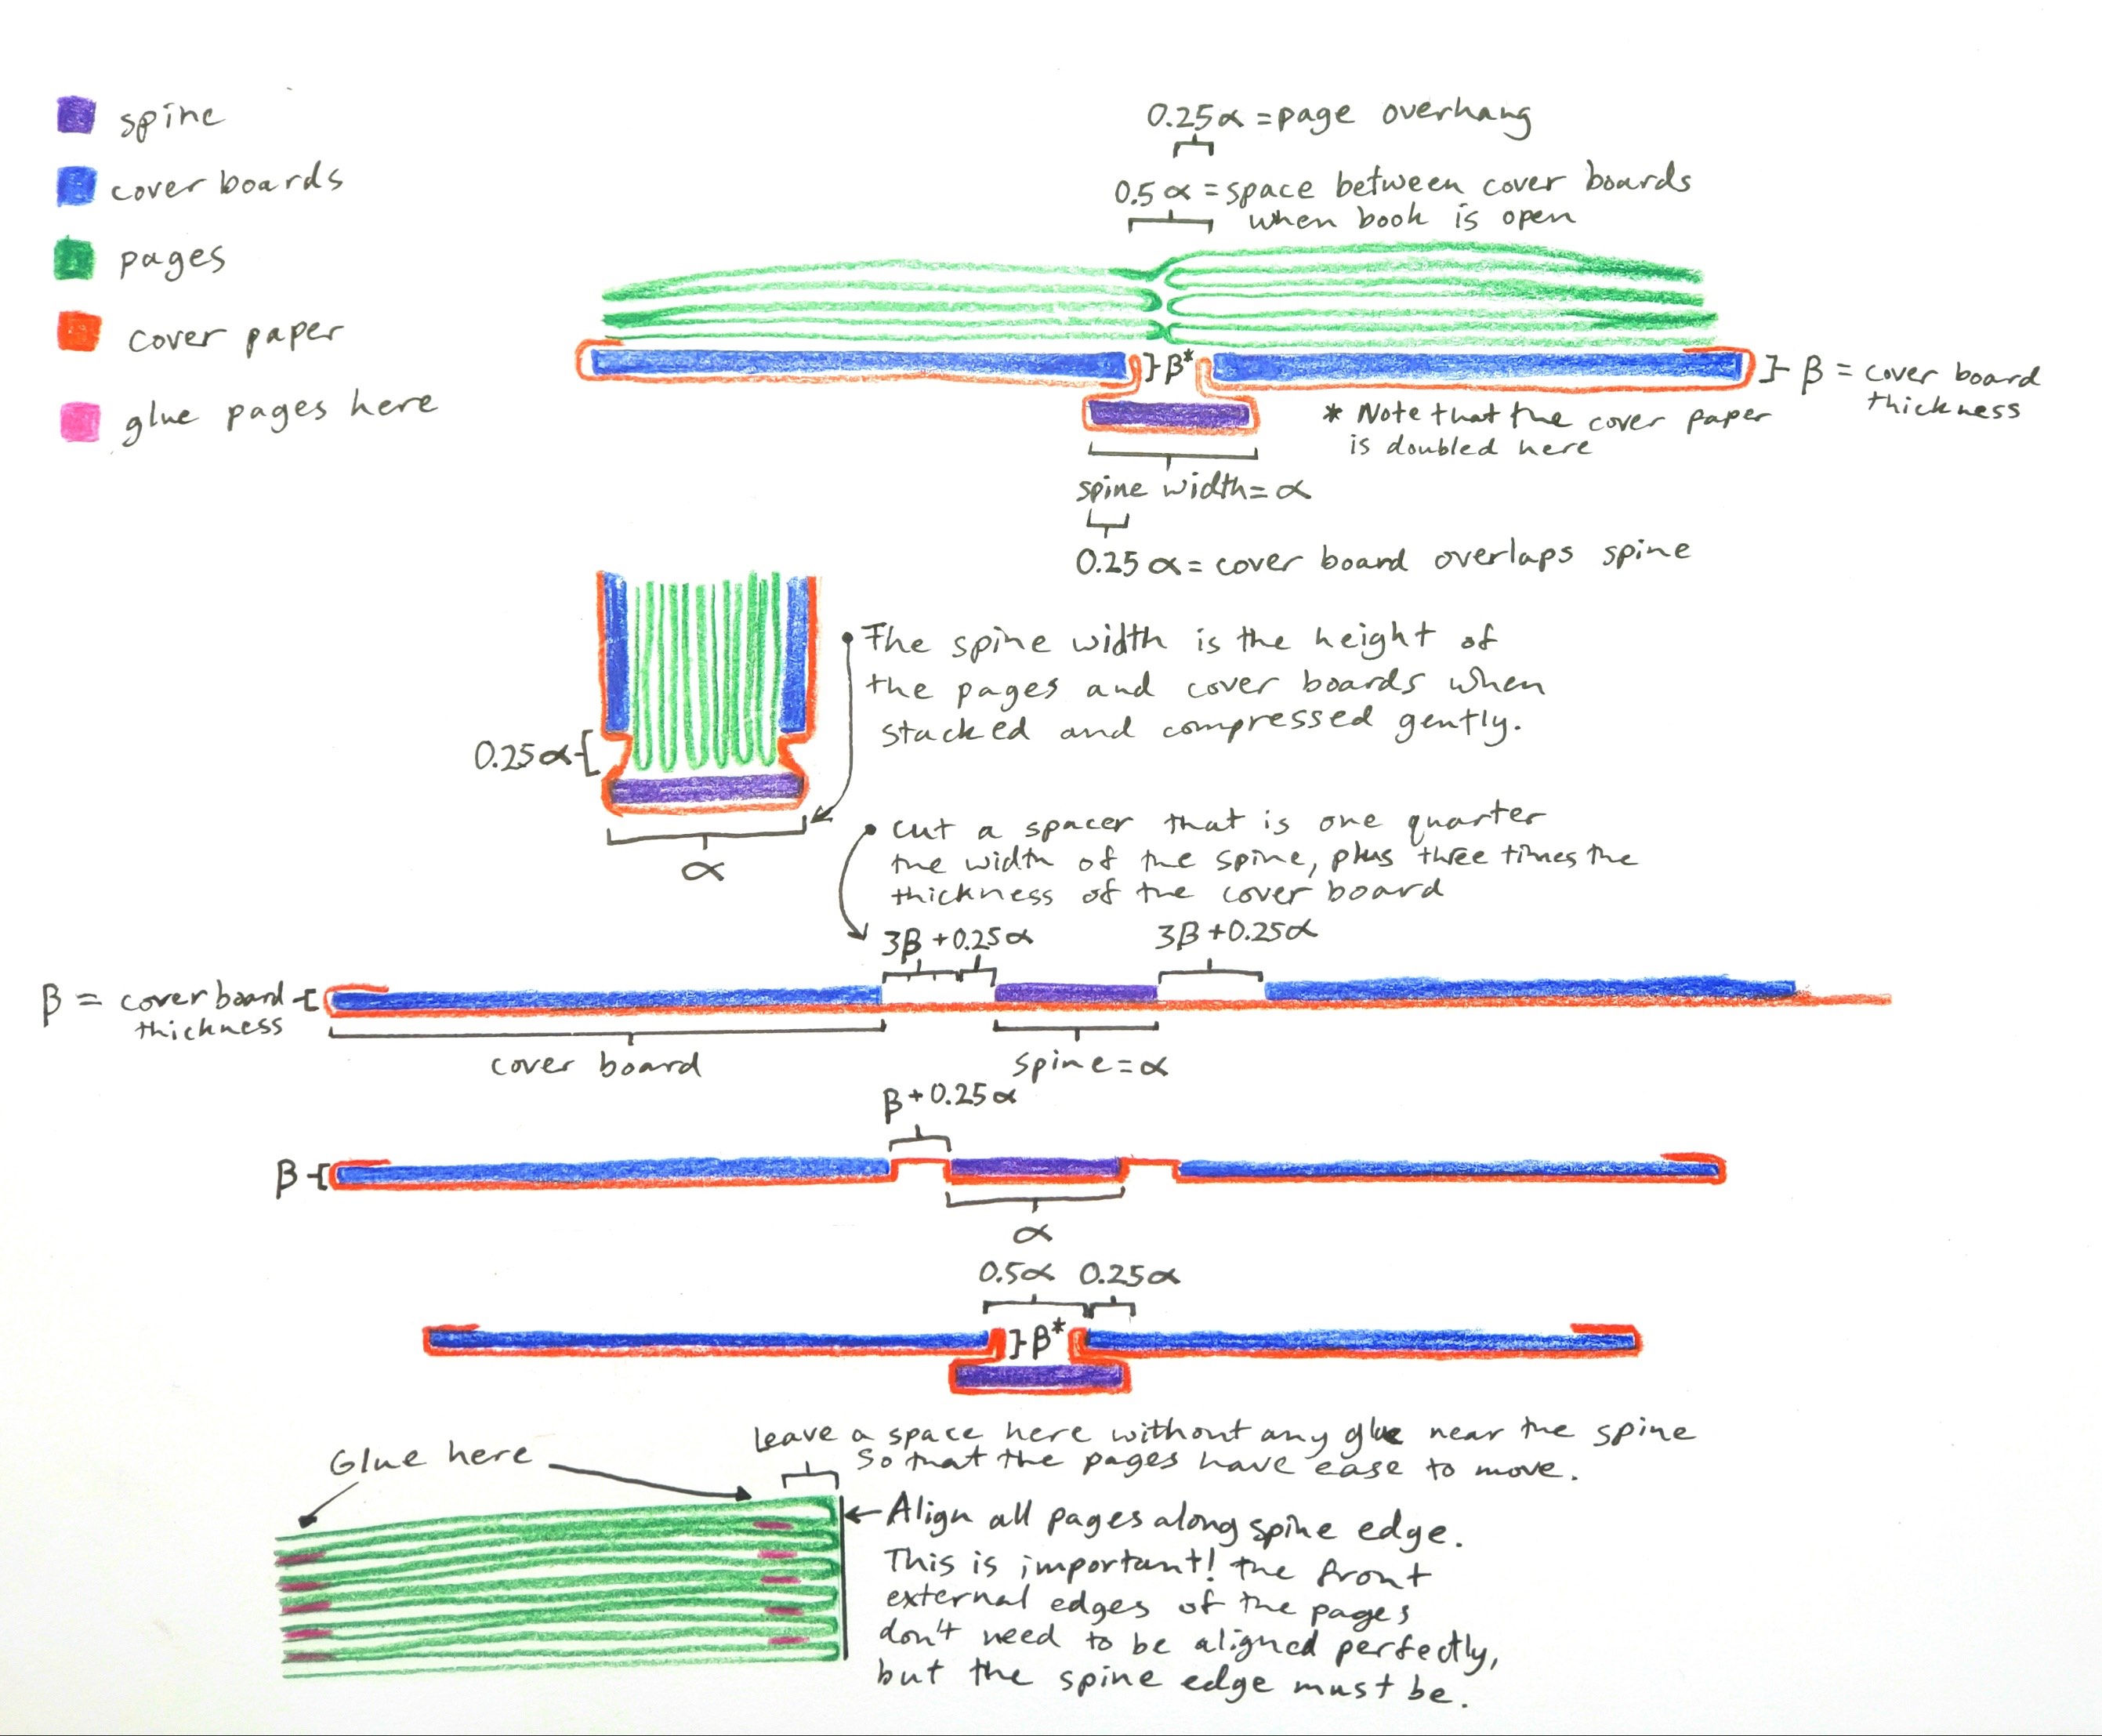 spine
cover boards
pages
cover paper
glue pages here
0.25α = page overhang
0.5α = space between cover boards
when book is open
β*
β = cover board
thickness
* Note that the cover paper
is doubled here
spine width = α
0.25α = cover board overlaps spine
• The spine width is the height of
the pages and cover boards when
stacked and compressed gently.
0.25α
α
• cut a spacer that is one quarter
the width of the spine, plus three times the
thickness of the cover board
3β + 0.25α
3β + 0.25α
β = cover board
thickness
cover board
spine = α
β + 0.25α
β
α
0.5α
0.25α
β*
Glue here
leave a space here without any glue near the spine
so that the pages have ease to move.
Align all pages along spine edge.
This is important! the front
external edges of the pages
don't need to be aligned perfectly,
but the spine edge must be.